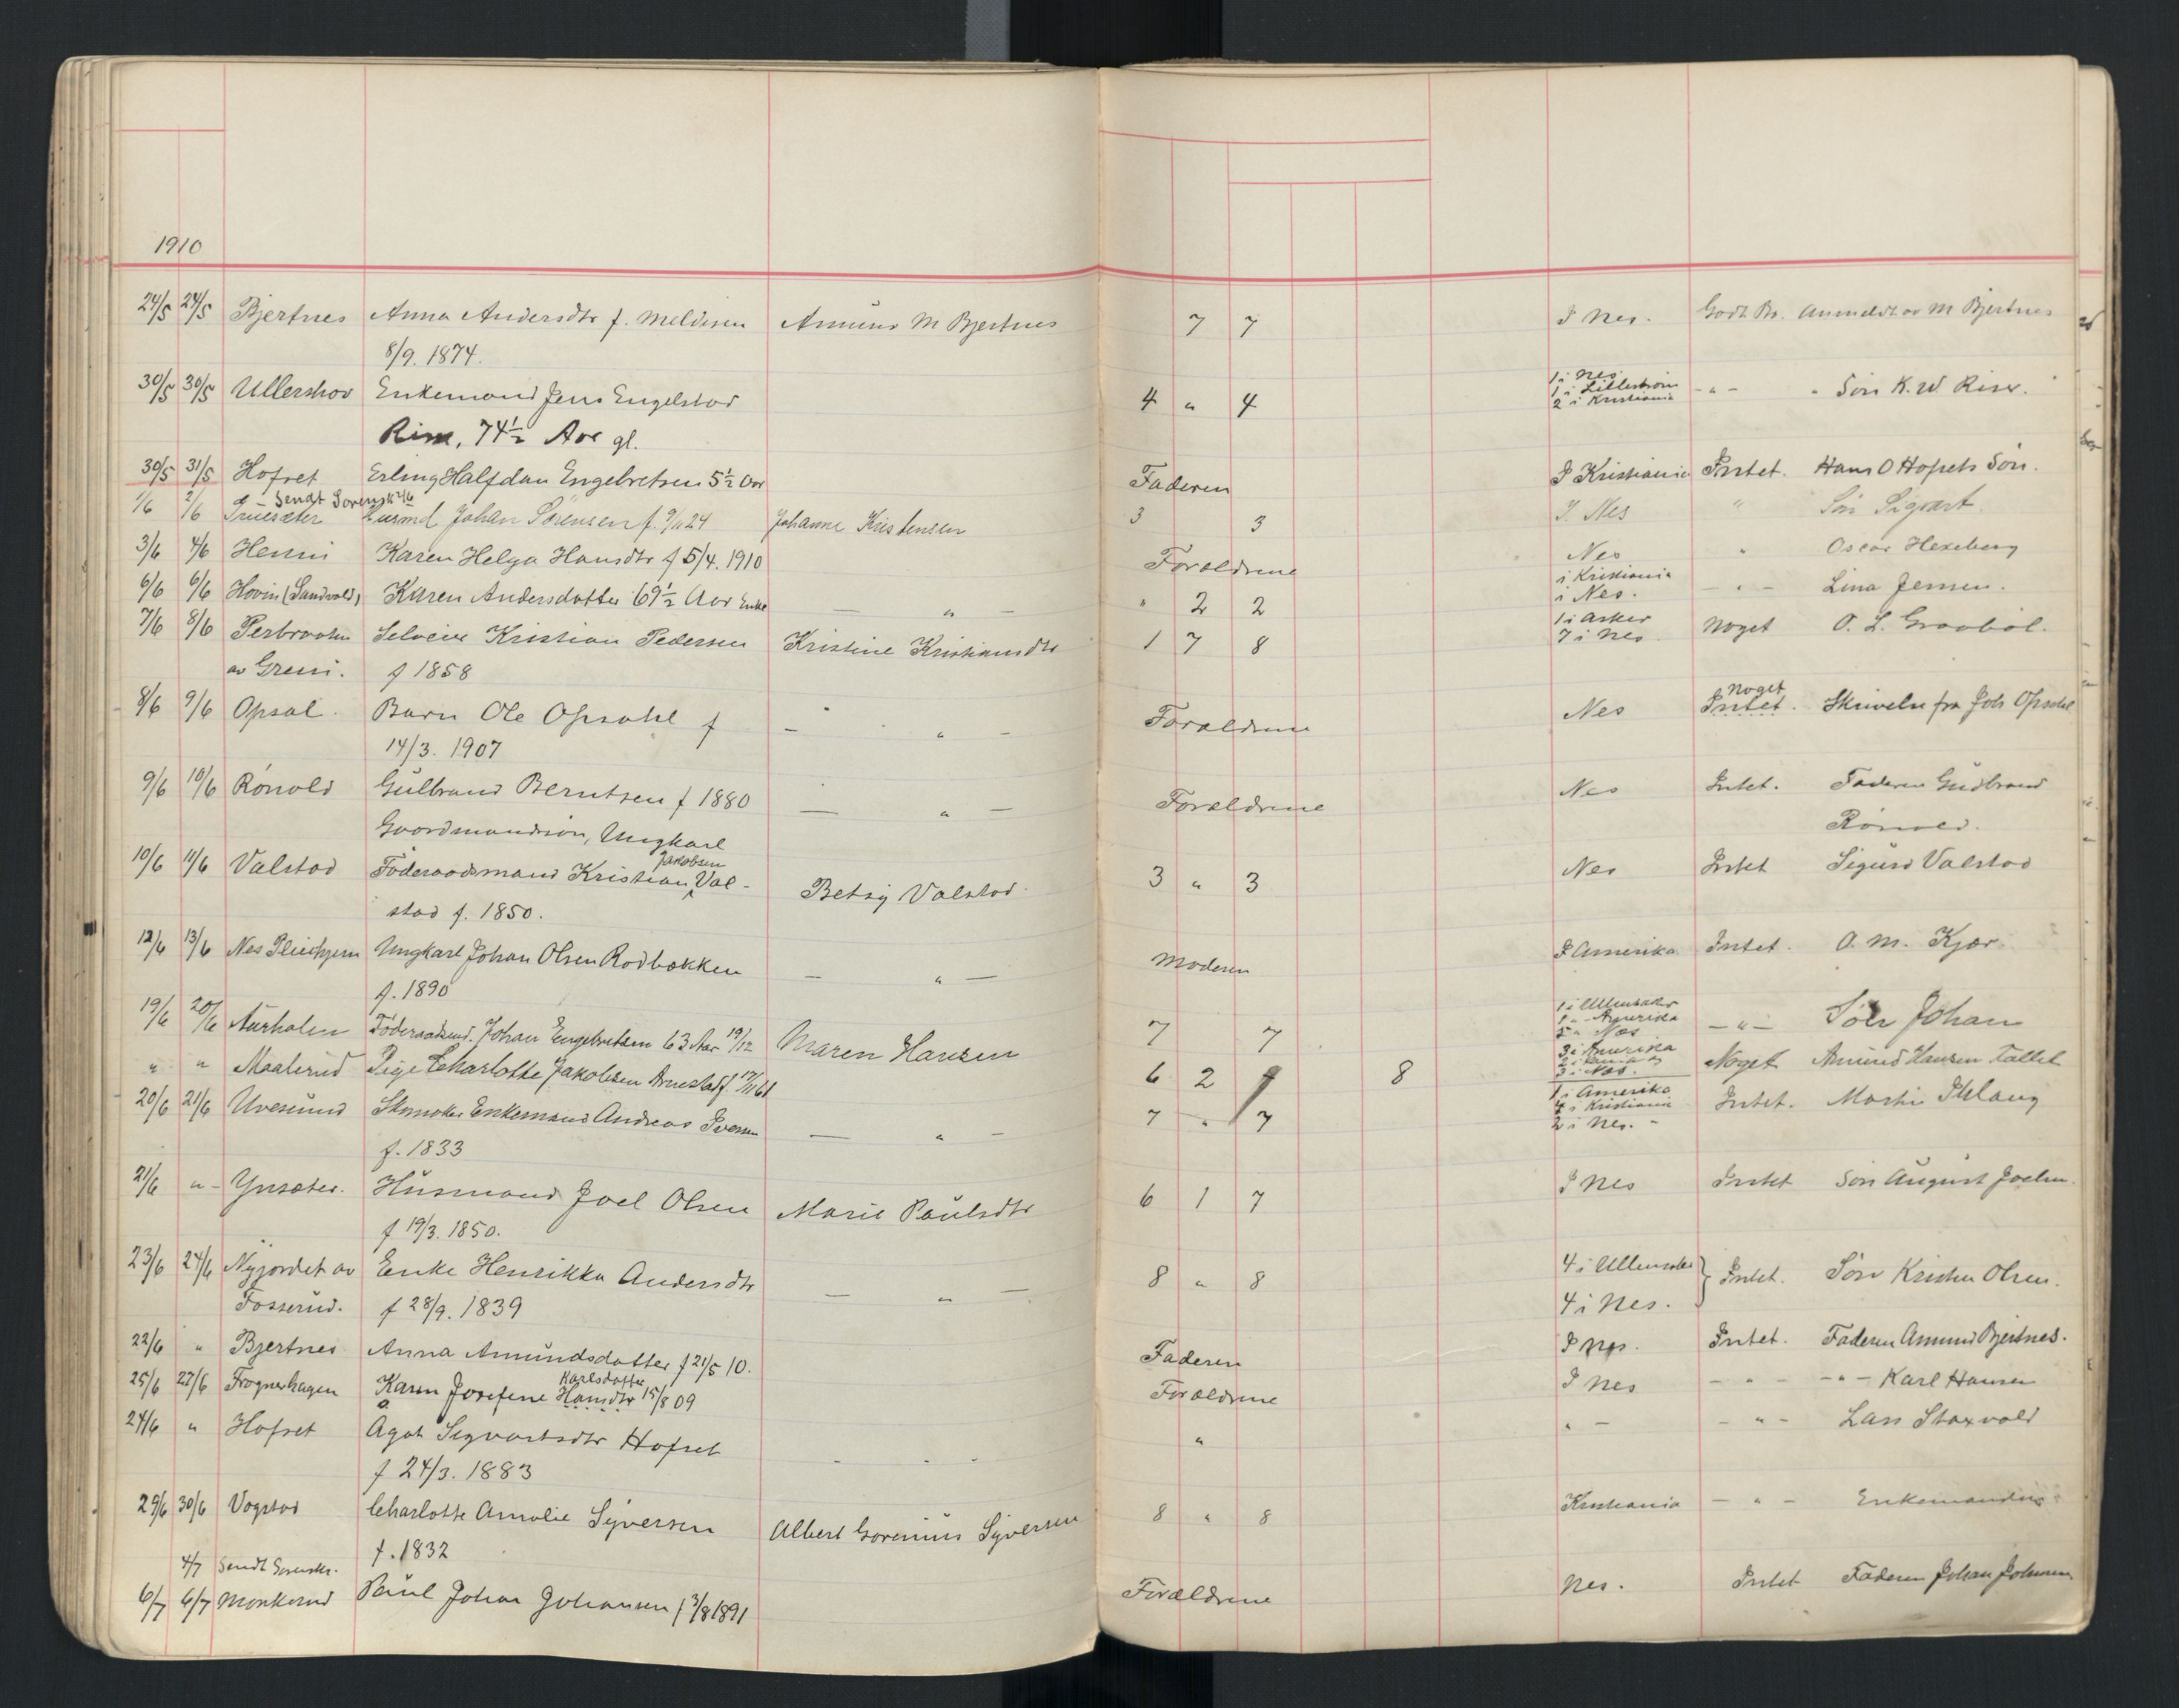 1910
24/5 24/5 Bjertnes Anna Andersdtr f. Meldisen Amund M Bjertnes 7 7 I Nes. Godt Bo. Anmeldt av M Bjertnes
8/9. 1874.
30/5 30/5 Ullershov Enkemand Jens Engelstad 4 " 4 1 i Nes 1 i Lillestrøm 2 i Kristiania - " - " Søn K. W. Rise.
Rise, 74½ Aar gl.
30/5 31/5 Hofset Erling Halfdan Engebretsen 5½ Aar Faderen I Kristiania Intet. Hans O Hofsets Søn.
Sendt Sorenskr
1/6 2/6 Truesæter Husmd Johan Sørensen f. 9/11 24 Johanne Kristensen 3 3 I Nes " Søn Sigvart.
3/6 4/6 Henni Karen Helga Hansdtr f 5/4. 1910 Forældrene Nes " Oscar Hexeberg
6/6 6/6 Hovin (Sandvold) Karen Andersdatter 69½ Aar Enke — " — " 2 2 i Kristiania i Nes. - " - Lina Jensen.
7/6 8/6 Perbraaten Selveier Kristian Pedersen Kristine Kristiansdtr 1 7 8 1 i Asker 7 i Nes Noget O. L. Graabøl.
av Greni. f 1858
8/6 9/6 Opsal. Barn Ole Opsahl f - " - Forældrene Nes Noget Intet. Skrivelse fra Joh Opsahl
14/3. 1907
9/6 10/6 Rønold Gulbrand Berntsen f 1880 — " — Forældrene Nes Intet. Faderen Gudbrand
Gaardmandssøn, Ungkarl Rønold.
10/6 11/6 Valstad Føderaadsmand Kristian Jakobsen Val- Betsy Valstad. 3 " 3 Nes Intet Sigurd Valstad
stad f. 1850.
12/6 13/6 Nes Pleiehjem Ungkarl Johan Olsen Rodbakken — " — Moderen I Amerika Intet. O. M. Kjær.
f. 1890
19/6 20/6 Aurholen Føderaadsmd. Johan Engebretsen 63 Aar 19/12 Maren Hansen 7 7 1 i Ullensaker 1 " Amerika 5 " Nes — " — Søn Johan
" " Maalerud Pige Charlotte Jakobsen Arnestad f 17/11 61 6 2 8 3 i Amerika 3 i Nes. Noget Amund Hansen Fallet
20/6 21/6 Uvesund Skomaker Enkemand Andreas Iversen — " — 7 " 7 1 i Amerika 4 i Kristiania 2 i Nes. - Intet. Martin Ihlang
f. 1833
21/6 " - Ynsæter. Husmand Joel Olsen Marie Paulsdtr 6 1 7 I Nes Intet Søn August Joelsen.
f 19/3. 1850.
23/6 24/6 Nyjordet av Enke Henrikka Andersdtr — " — 8 " 8 4 i Ullensaker Intet. Søn Kristen Olsen.
Fosserud. f 28/9. 1839 4 i Nes.
22/6 " Bjertnes Anna Amundsdatter f 21/5 10. Faderen I Nes. Intet. Faderen Amund Bjertnes.
25/6 27/6 Frognerhagen Karen Josefine Karlsdatter Hansdtr 15/8 09 Forældrene I Nes - " - - " - Karl Hansen
24/6 " Hofset Agot Sigvartsdtr Hofset " " - - " - Lars Staxvold
f 24/3. 1883
29/6 30/6 Vogstad Charlotte Amalie Syversen Albert Gorenius Syversen 8 " 8 Kristiania - " - Enkemanden
f. 1832
4/7 Sendt Sorenskr.
6/7 6/7 Monkerud Paul Johan Johansen f 3/8 1891 Forældrene Nes. Intet Faderen Johan Johansen